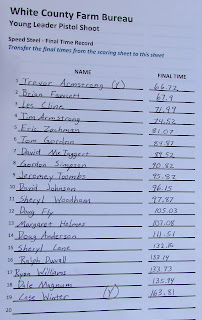 White County Farm Bureau
Young Leader Pistol Shoot
Speed Steel - Final Time Record
Transfer the final times from the scoring sheet to this sheet
NAME FINAL TIME
1 Trevor Armstrong (Y) 66.72
2 Brian Forment 67.9
3 Les Cline 71.99
4 Tim Armstrong 74.52
5 Eric Zachman 81.07
6 Tom Gordon 84.87
7 David McTaggert 89.52
8 Gordon Simpson 90.82
9 Jeromey Toombs 95.82
10 David Johnson 96.15
11 Sheryl Woodham 97.87
12 Doug Fly 105.03
13 Margaret Holmes 107.08
14 Doug Anderson 111.51
15 Sheryl Lane
16 Ralph Duvall
17 Ryan Williams 133.73
18 Dale Magnum 135.94
19 Case Winter (Y) 163.81
20